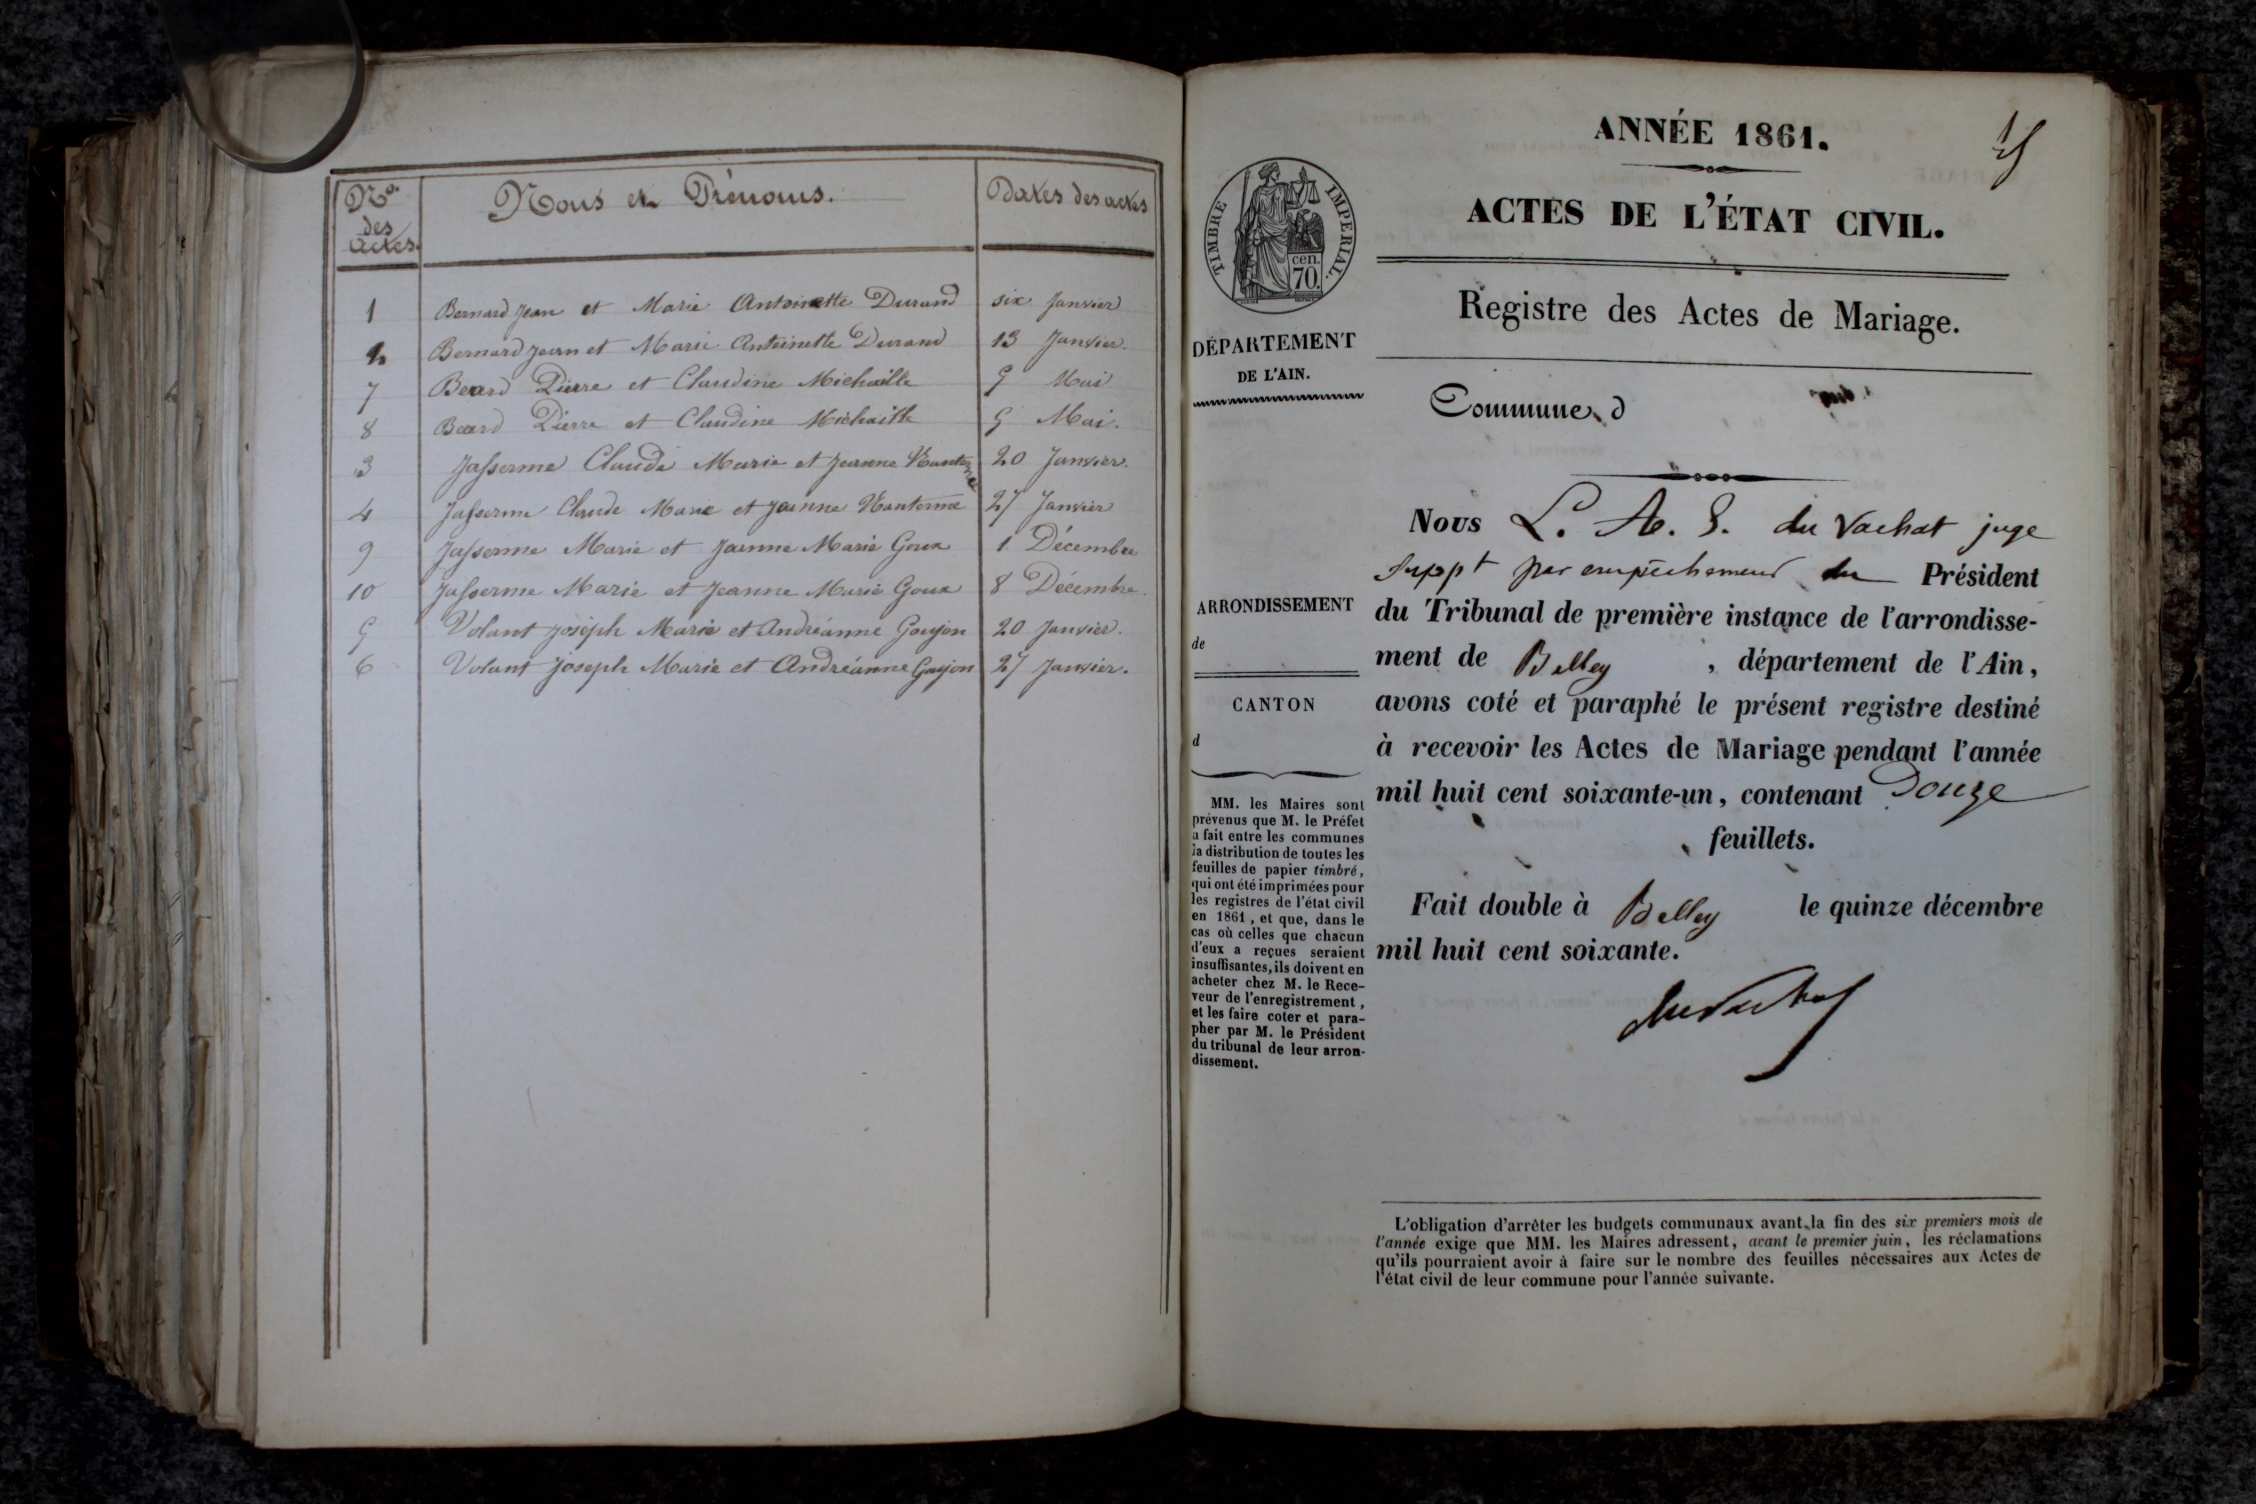 Nos. des Actes
Noms et Prénoms.
Dates des actes
1 Bernard Jean et Marie Antoinette Durand six Janvier
2 Bernard Jean et Marie Antoinette Durand 13 Janvier.
7 Béard Pierre et Claudine Michaille 5 Mai
8 Béard Pierre et Claudine Michaille 5 Mai.
3 Jasserme Claude Marie et Jeanne Nanterme 20 Janvier.
4 Jasserme Claude Marie et Jeanne Nanterme 27 Janvier
9 Jasserme Marie et Jeanne Marie Goux 1 Décembre
10 Jasserme Marie et Jeanne Marie Goux 8 Décembre.
5 Volant Joseph Marie et Andréanne Goujon 20 Janvier.
6 Volant Joseph Marie et Andréanne Goujon 27 Janvier.
ANNÉE 1861.
ACTES DE L'ÉTAT CIVIL.
TIMBRE IMPERIAL.
cen.
70.
Registre des Actes de Mariage.
DÉPARTEMENT
DE L'AIN.
Commune d
Nous L. A. du Vachat juge
suppt par empêchement du Président
du Tribunal de première instance de l'arrondisse-
ment de Belley, département de l'Ain,
avons coté et paraphé le présent registre destiné
à recevoir les Actes de Mariage pendant l'année
mil huit cent soixante-un, contenant Douze
feuillets.
Fait double à Belley le quinze décembre
mil huit cent soixante.
duVachat
ARRONDISSEMENT
de
CANTON
d
MM. les Maires sont
prévenus que M. le Préfet
a fait entre les communes
la distribution de toutes les
feuilles de papier timbré,
qui ont été imprimées pour
les registres de l'état civil
en 1861, et que, dans le
cas où celles que chacun
d'eux a reçues seraient
insuffisantes, ils doivent en
acheter chez M. le Rece-
veur de l'enregistrement,
et les faire coter et para-
pher par M. le Président
du tribunal de leur arron-
dissement.
L'obligation d'arrêter les budgets communaux avant la fin des six premiers mois de
l'année exige que MM. les Maires adressent, avant le premier juin, les réclamations
qu'ils pourraient avoir à faire sur le nombre des feuilles nécessaires aux Actes de
l'état civil de leur commune pour l'année suivante.